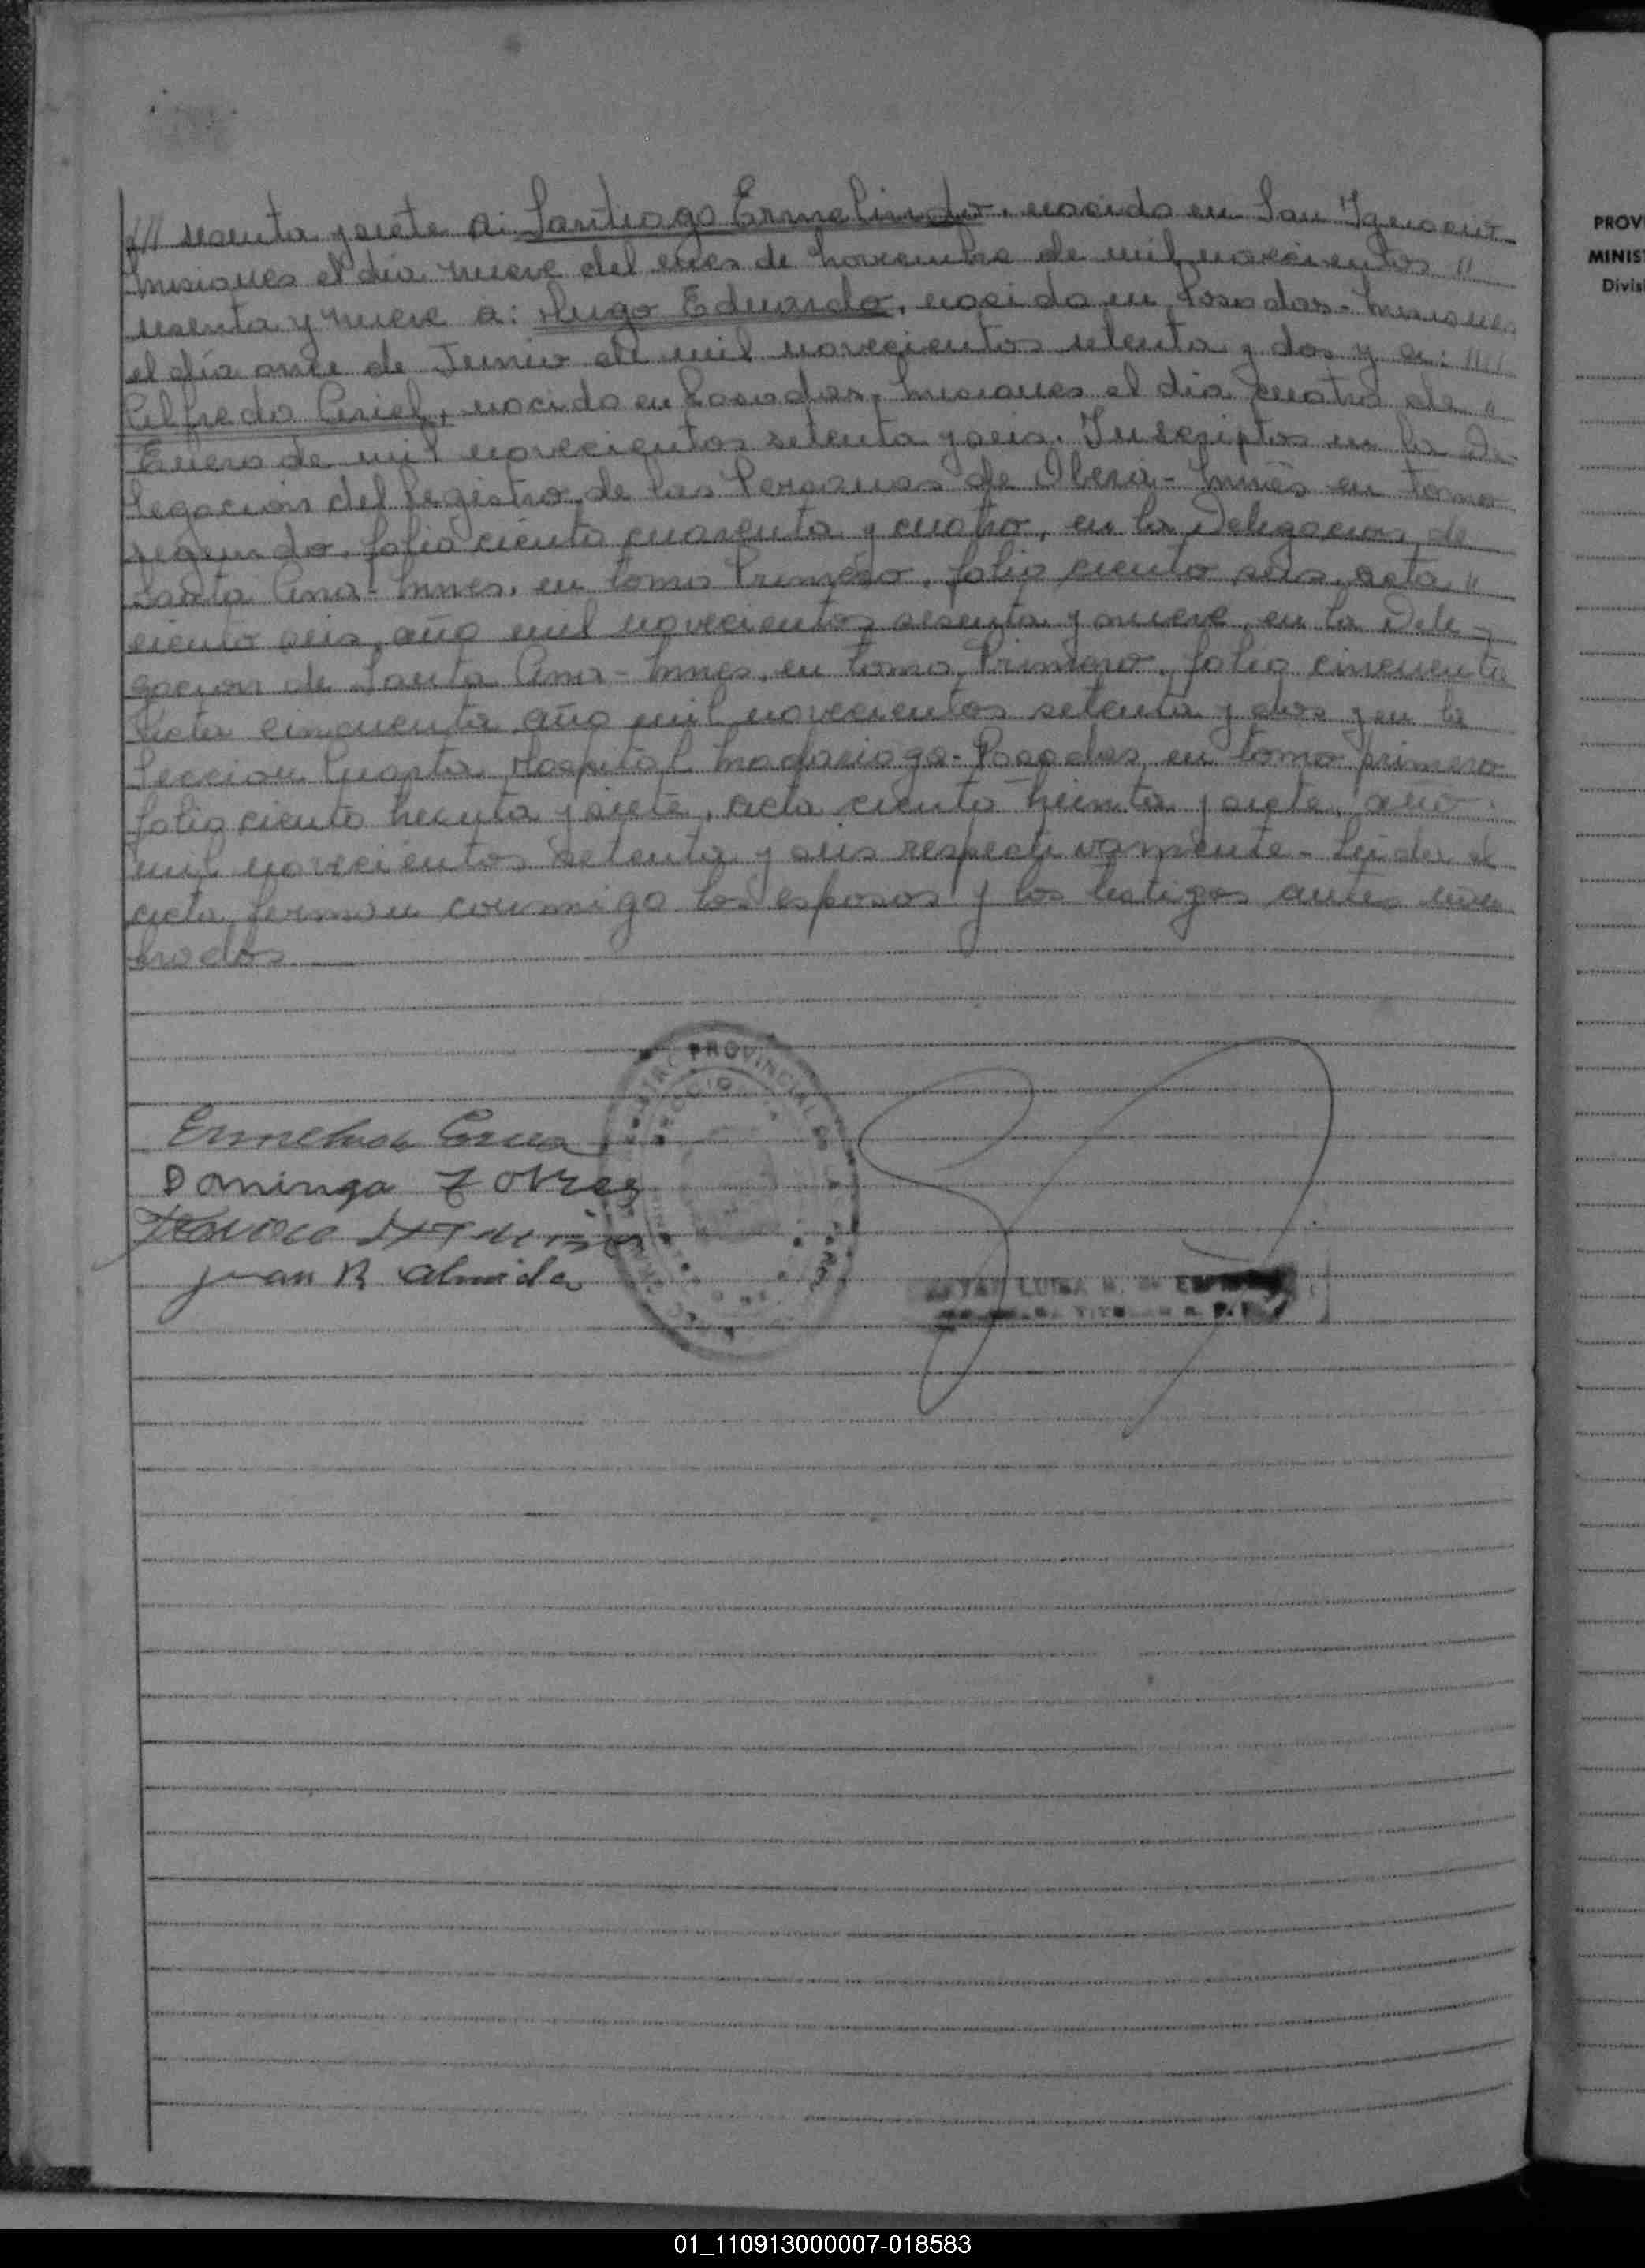 /// sesenta y siete a: Santiago Ermelindo, nacido en San Ignacio
Misiones el día nueve del mes de Noviembre de mil novecientos "
sesenta y nueve a: Hugo Eduardo, nacido en Posadas - Misiones
el día once de Junio de mil novecientos setenta y dos y a: ////
Alfredo Ariel, nacido en Posadas, Misiones el día cuatro de "
Enero de mil novecientos setenta y seis. Inscriptos en la De-
legación del Registro de las Personas de Oberá - Mnes en Tomo
segundo, folio ciento cuarenta y cuatro, en la Delegacion de
Santa Ana - Mnes, en tomo Primero, folio ciento seis, acta "
ciento seis, año mil novecientos sesenta y nueve, en la Dele-
gacion de Santa Ana - Mnes, en tomo Primero, folio cincuenta
Acta cincuenta, año mil novecientos setenta y dos y en la
Seccion Cuarta Hospital Madariaga - Posadas, en tomo primero
folio ciento treinta y siete, acta ciento treinta y siete, año
mil novecientos setenta y seis respectivamente - Leida el
acta, firman conmigo los esposos y los testigos antes nom
brados
PROVINCIAL
Dominga Torres
Juan R Almida
LUISA
TITULAR R. P.
PROV
MINIS
Divis
01_110913000007-018583